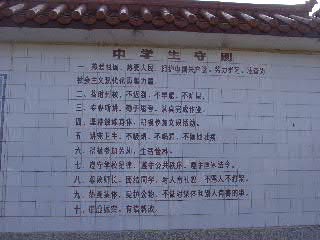 中学生守则
一、热爱祖国，热爱人民，拥护中国共产党，努力学习，准备为
社会主义现代化贡献力量。
二、按时到校，不迟到，不早退，不旷课。
三、专心听讲，勤于思考，认真完成作业。
四、坚持锻炼身体，积极参加文娱活动。
五、讲究卫生，不吸烟，不喝酒，不随地吐痰。
六、积极参加劳动，生活俭朴。
七、遵守学校纪律，遵守公共秩序，遵守国家法令。
八、尊敬师长，团结同学，对人有礼貌，不骂人，不打架。
九、热爱集体，爱护公物，不做对集体和别人有害的事。
十、诚实谦虚，有错就改。